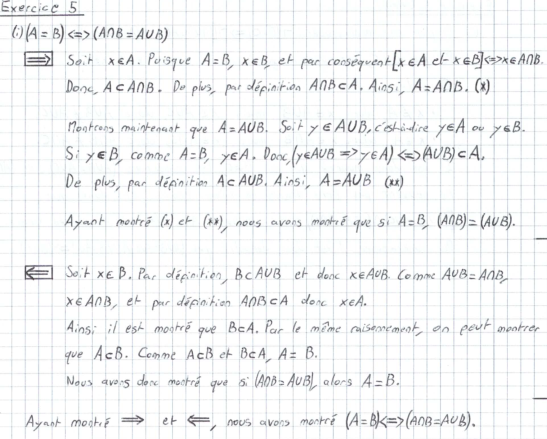 Exercice 5
(i) (A = B) <=> (A∩B = A∪B)
=> Soit x∈A. Puisque A=B, x∈B, et par conséquent [x∈A et x∈B] <=> x∈A∩B.
Donc, A⊂A∩B. De plus, par définition A∩B⊂A. Ainsi, A=A∩B. (*)
Montrons maintenant que A=A∪B. Soit y∈A∪B, c'est-à-dire y∈A ou y∈B.
Si y∈B, comme A=B, y∈A. Donc, (y∈A∪B => y∈A) <=> (A∪B)⊂A.
De plus, par définition A⊂A∪B. Ainsi, A=A∪B (**)
Ayant montré (*) et (**), nous avons montré que si A=B, (A∩B)=(A∪B).
<= Soit x∈B. Par définition, B⊂A∪B et donc x∈A∪B. Comme A∪B=A∩B,
x∈A∩B, et par définition A∩B⊂A donc x∈A.
Ainsi il est montré que B⊂A. Par le même raisonnement, on peut montrer
que A⊂B. Comme A⊂B et B⊂A, A = B.
Nous avons donc montré que si (A∩B=A∪B), alors A=B.
Ayant montré => et <=, nous avons montré (A=B)<=>(A∩B=A∪B).